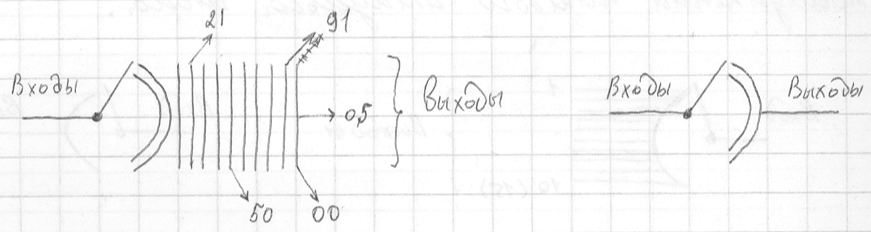 21
91
Входы
0,5
Выходы
50
00
Входы
Выходы